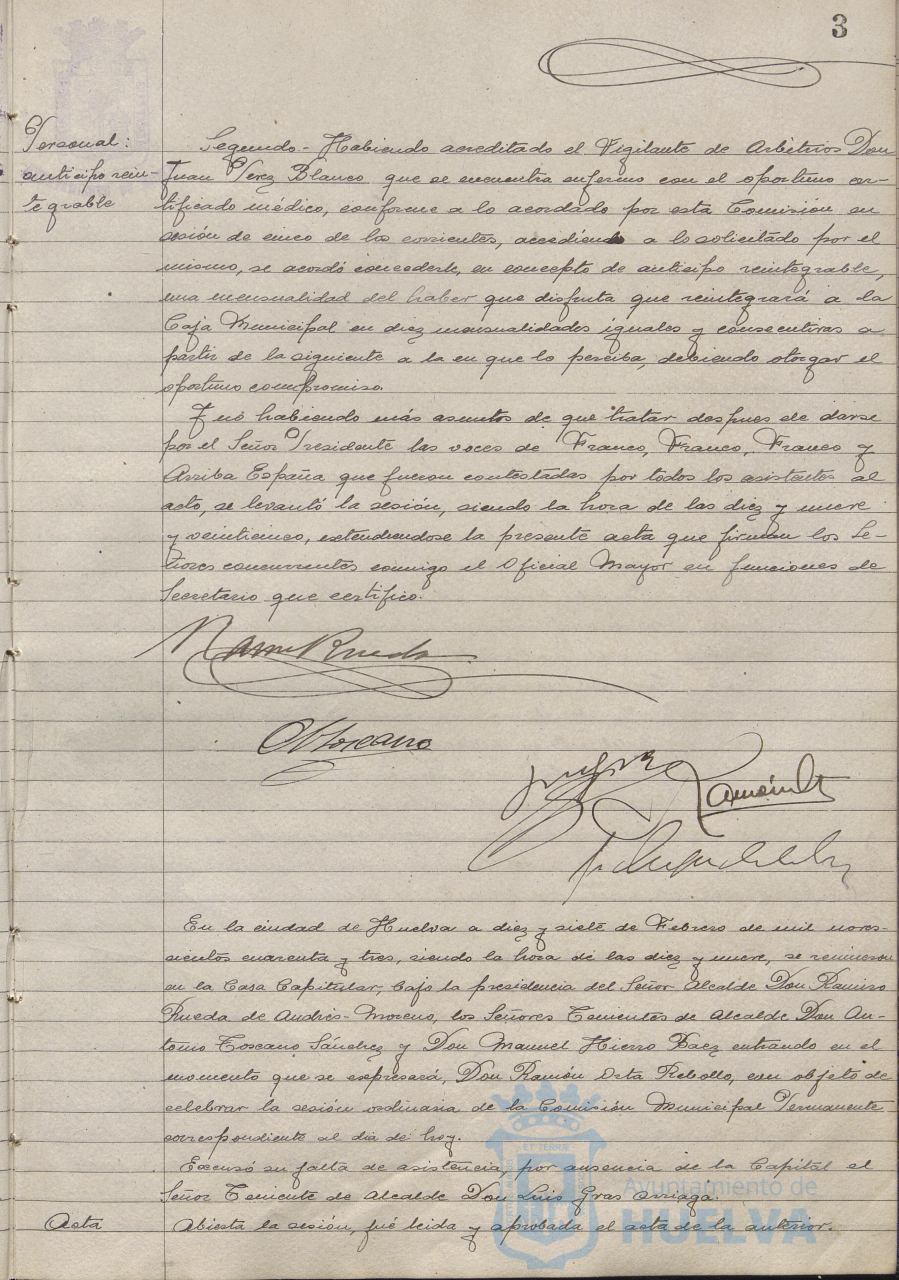 3
Personal:
anticipo rein-
tegrable
Segundo.- Habiendo acreditado el Vigilante de Arbitrios Don
Juan Perez Blanco que se encuentra enfermo con el oportuno cer-
tificado médico, conforme a lo acordado por esta Comisión en
sesión de cinco de los corrientes, accediendo a lo solicitado por el
mismo, se acordó concederle, en concepto de anticipo reintegrable,
una mensualidad del haber que disfruta que reintegrará a la
Caja Municipal en diez mensualidades iguales y consecutivas a
partir de la siguiente a la en que lo perciba, debiendo otorgar el
oportuno compromiso.
Y no habiendo más asuntos de que tratar despues de darse
por el Señor Presidente las voces de Franco, Franco, Franco y
Arriba España que fueron contestadas por todos los asistentes al
acto, se levantó la sesión, siendo la hora de las diez y nueve
y veinticinco, extendiendose la presente acta que firman los Se-
ñores concurrentes conmigo el Oficial Mayor en funciones de
Secretario que certifico.
Rueda
Toscano
En la ciudad de Huelva a diez y siete de Febrero de mil nove-
cientos cuarenta y tres, siendo la hora de las diez y nueve, se reunieron
en la Casa Capitular, bajo la presidencia del Señor Alcalde Don Ramiro
Rueda de Andrés-Moreno, los Señores Tenientes de Alcalde Don An-
tonio Toscano Sánchez y Don Manuel Hierro Baez entrando en el
momento que se expresará, Don Ramón Orta Rebollo, con objeto de
celebrar la sesión ordinaria de la Comisión Municipal Permanente
correspondiente al dia de hoy.
Excusó su falta de asistencia, por ausencia de la Capital el
Señor Teniente de Alcalde Don Luis Gras Arriaga.
Acta
Abierta la sesión, fué leida y aprobada el acta de la anterior.
Ayuntamiento de
HUELVA